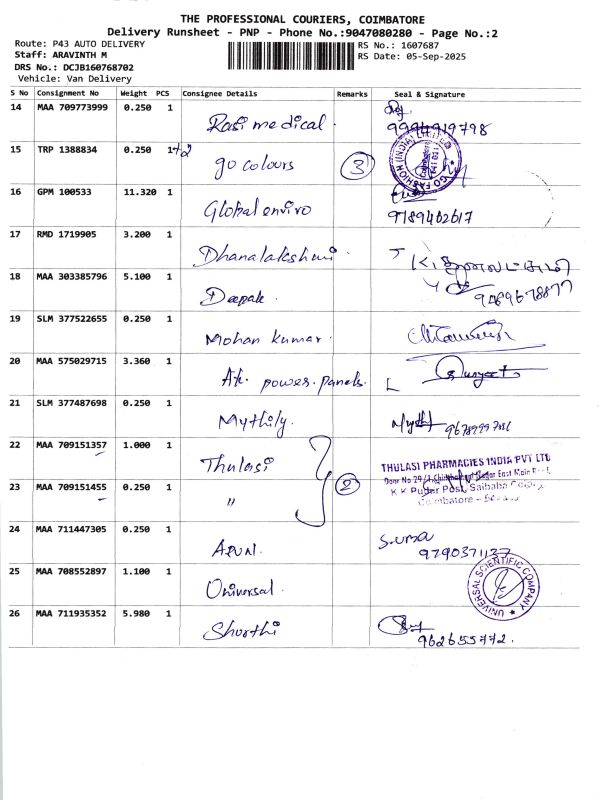 THE PROFESSIONAL COURIERS, COIMBATORE
Delivery Runsheet - PNP - Phone No.:9047080280 - Page No.:2
Route: P43 AUTO DELIVERY RS No.: 1607687
Staff: ARAVINTH M RS Date: 05-Sep-2025
DRS No.: DCJB160768702
Vehicle: Van Delivery
S No Consignment No Weight PCS Consignee Details Remarks Seal & Signature
14 MAA 709773999 0.250 1 Rasi medical. 9994919798
15 TRP 1388834 0.250 1+2 go colours 3 GO FASHION (INDIA) LIMITED
16 GPM 100533 11.320 1 Global enviro 9789402617
17 RMD 1719905 3.200 1 Dhanalakshmi
18 MAA 303385796 5.100 1 Deepak. 9489678877
19 SLM 377522655 0.250 1 Mohan kumar.
20 MAA 575029715 3.360 1 power. panels.
21 SLM 377487698 0.250 1 Mythily.
22 MAA 709151357 1.000 1 Thulasi THULASI PHARMACIES INDIA PVT LTD
23 MAA 709151455 0.250 1 " 2 K K Pudur Post, Saibaba Colony
Coimbatore
24 MAA 711447305 0.250 1 Arun. Suma 9790371137
25 MAA 708552897 1.100 1 Universal. UNIVERSAL SCIENTIFIC COMPANY
26 MAA 711935352 5.980 1 Shurthi 962655772.